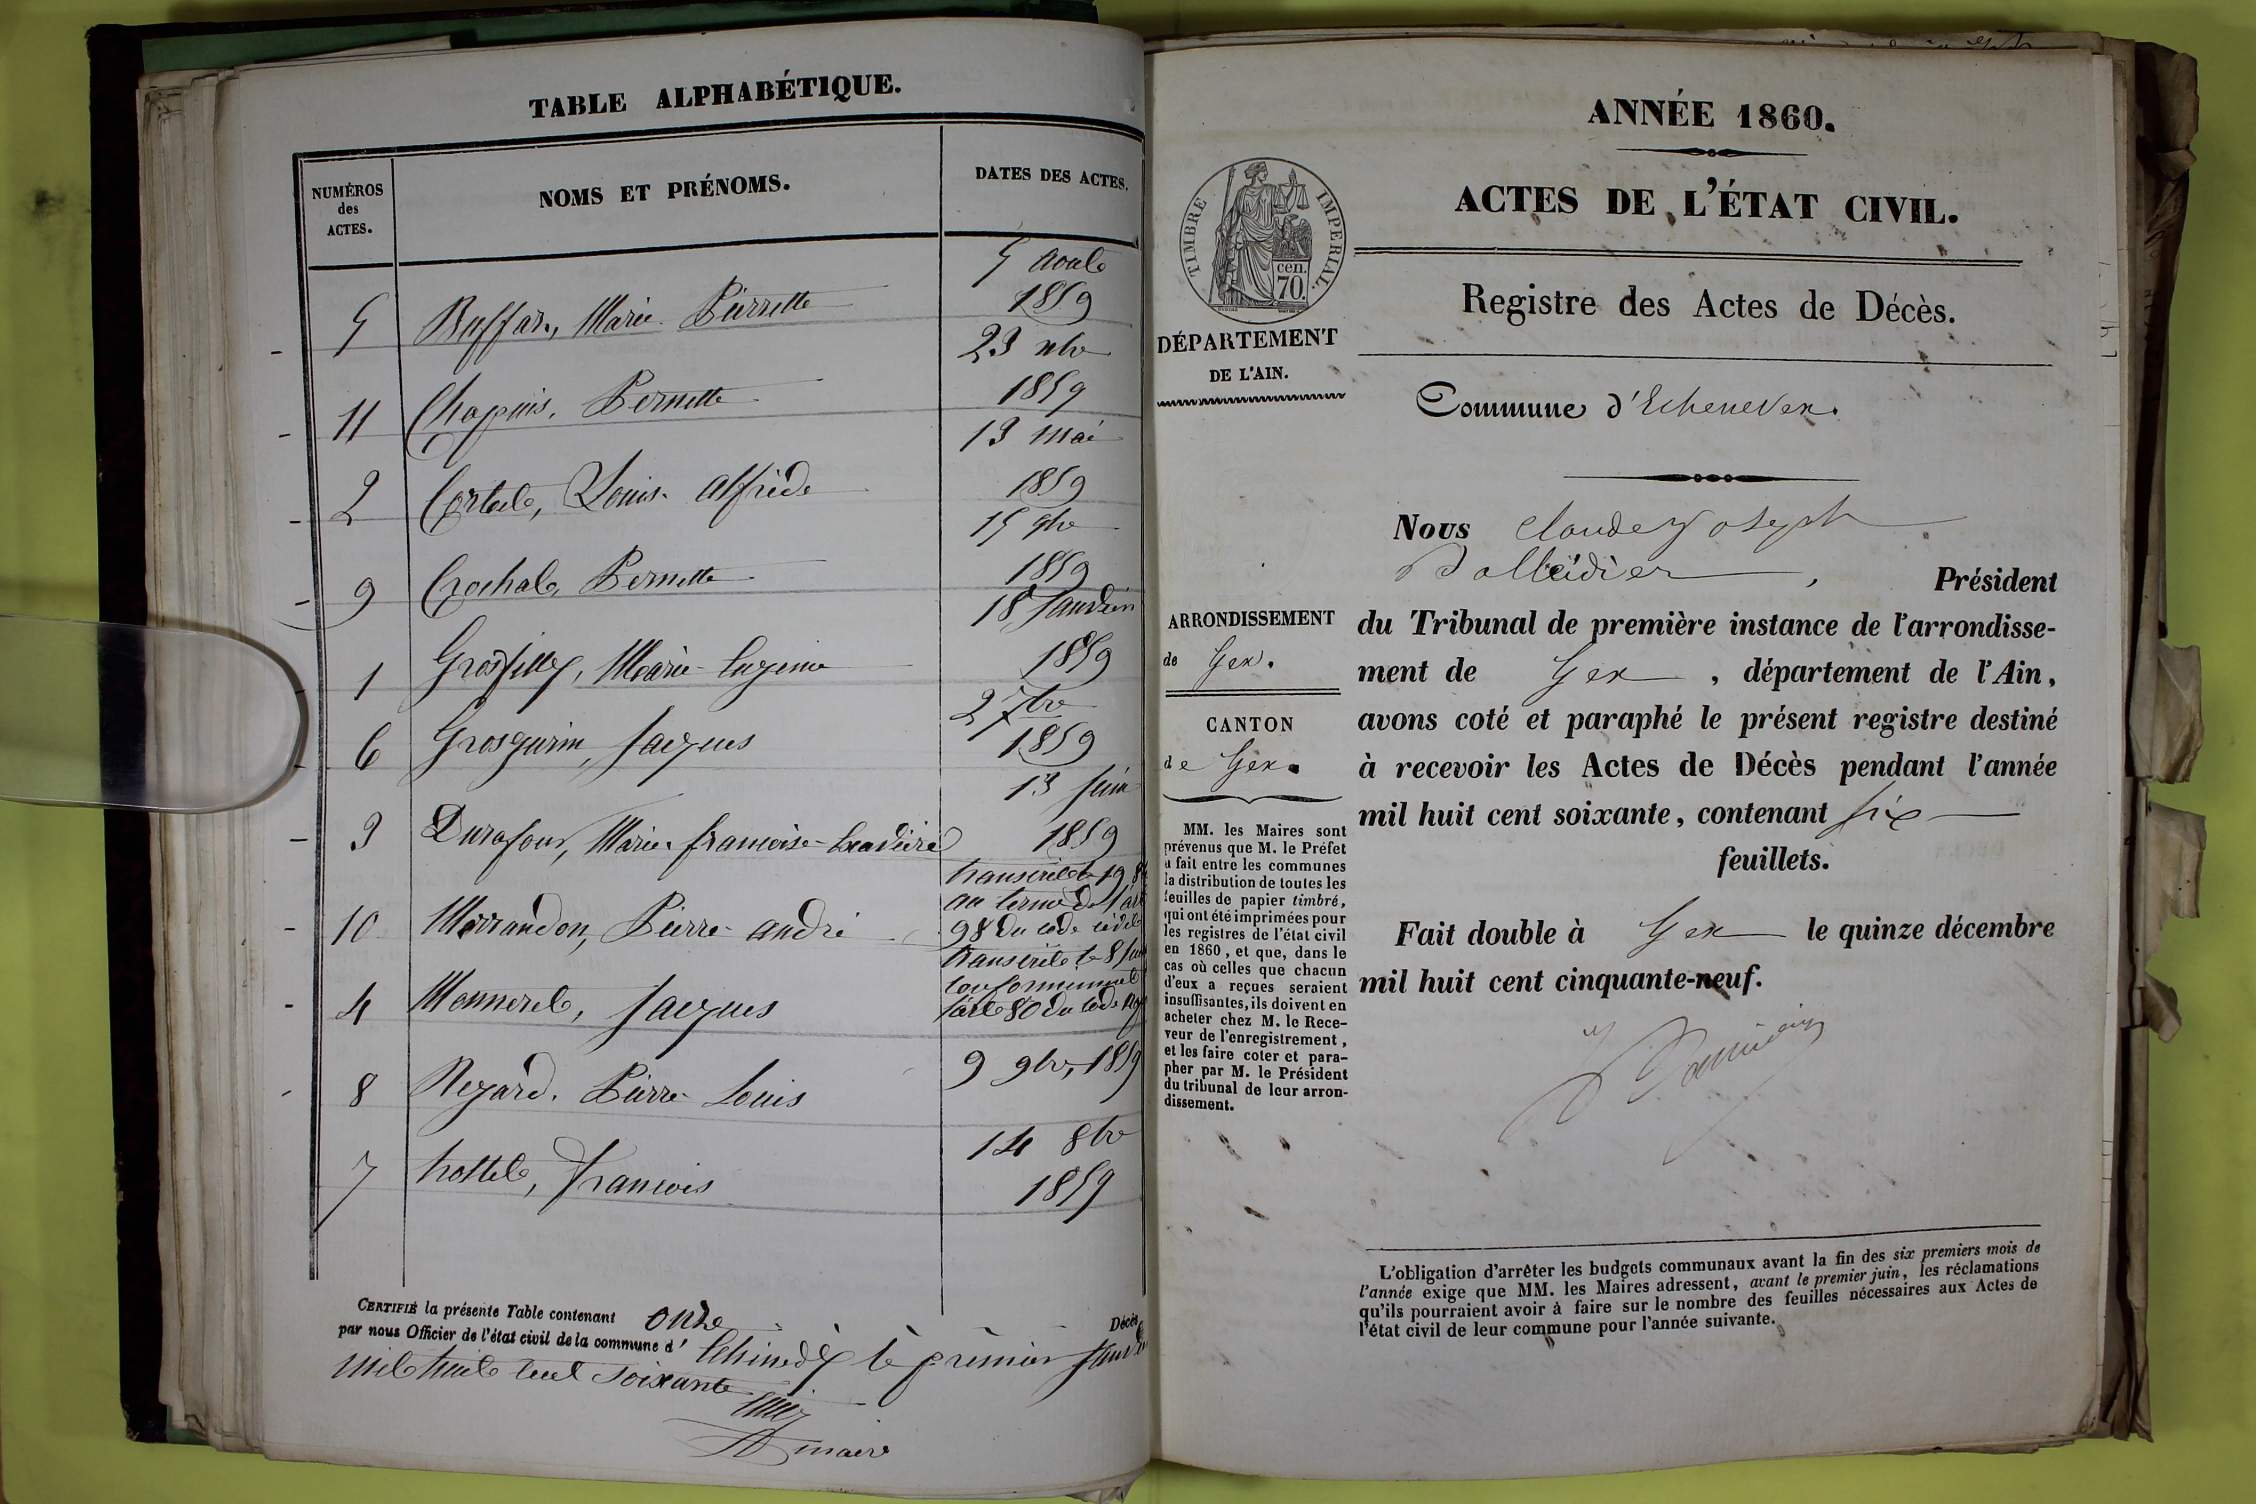 TABLE ALPHABÉTIQUE.
NUMÉROS
des
ACTES.
NOMS ET PRÉNOMS.
DATES DES ACTES.
5 Marie Pierrette 5 aout
1859
11 Chapuis, Pernette 23 xbre
1859
2 Louis alfred 13 mai
1859
9 Crochat, Pernette 15 9bre
1859
1 Grosfilley, Marie Eugenie 18 Janvier
1859
6 Grosgurin, Jacques 2 7bre
1859
3 Durafour, Marie françoise 13 Juin
1859
10 Morrandon, Pierre andré transcrit le 19
au terme de l'art
98 du code civil
4 Monneret, Jacques transcrit le 8
conformement
l'art 80 du code
8 Regard, Pierre Louis 9 9bre, 1859
7 trottet, francois 14 8bre
1859
CERTIFIÉ la présente Table contenant onze Décès
par nous Officier de l'état civil de la commune d' le premier Janvier
mil huit cent soixante
maire
ANNÉE 1860.
ACTES DE L'ÉTAT CIVIL.
Registre des Actes de Décès.
TIMBRE IMPERIAL.
cen.
70.
DÉPARTEMENT
DE L'AIN.
Commune d'Echenevex.
ARRONDISSEMENT
de Gex.
CANTON
de Gex.
MM. les Maires sont
prévenus que M. le Préfet
a fait entre les communes
la distribution de toutes les
feuilles de papier timbré,
qui ont été imprimées pour
les registres de l'état civil
en 1860, et que, dans le
cas où celles que chacun
d'eux a reçues seraient
insuffisantes, ils doivent en
acheter chez M. le Rece-
veur de l'enregistrement,
et les faire coter et para-
pher par M. le Président
du tribunal de leur arron-
dissement.
Nous Claude Joseph
, Président
du Tribunal de première instance de l'arrondisse-
ment de Gex, département de l'Ain,
avons coté et paraphé le présent registre destiné
à recevoir les Actes de Décès pendant l'année
mil huit cent soixante, contenant six
feuillets.
Fait double à Gex le quinze décembre
mil huit cent cinquante-neuf.
L'obligation d'arrêter les budgets communaux avant la fin des six premiers mois de
l'année exige que MM. les Maires adressent, avant le premier juin, les réclamations
qu'ils pourraient avoir à faire sur le nombre des feuilles nécessaires aux Actes de
l'état civil de leur commune pour l'année suivante.